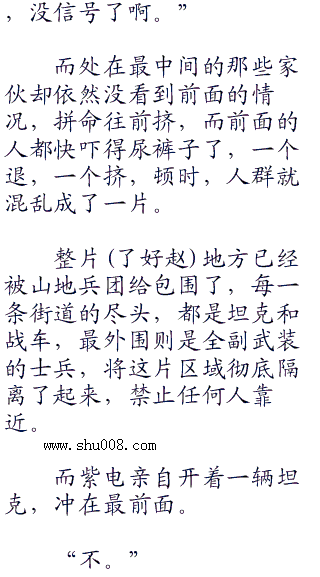 ，没信号了啊。”
而处在最中间的那些家
伙却依然没看到前面的情
况，拼命往前挤，而前面的
人都快吓得尿裤子了，一个
退，一个挤，顿时，人群就
混乱成了一片。
整片(了好赵)地方已经
被山地兵团给包围了，每一
条街道的尽头，都是坦克和
战车，最外围则是全副武装
的士兵，将这片区域彻底隔
离了起来，禁止任何人靠
近。
www.shu008.com
而紫电亲自开着一辆坦
克，冲在最前面。
“不。”